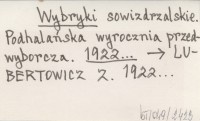 Wybryki sowizdrzalskie.
Podhalańska wyrocznia przed-
wyborcza. 1922... → LU-
BERTOWICZ Z. 1922...